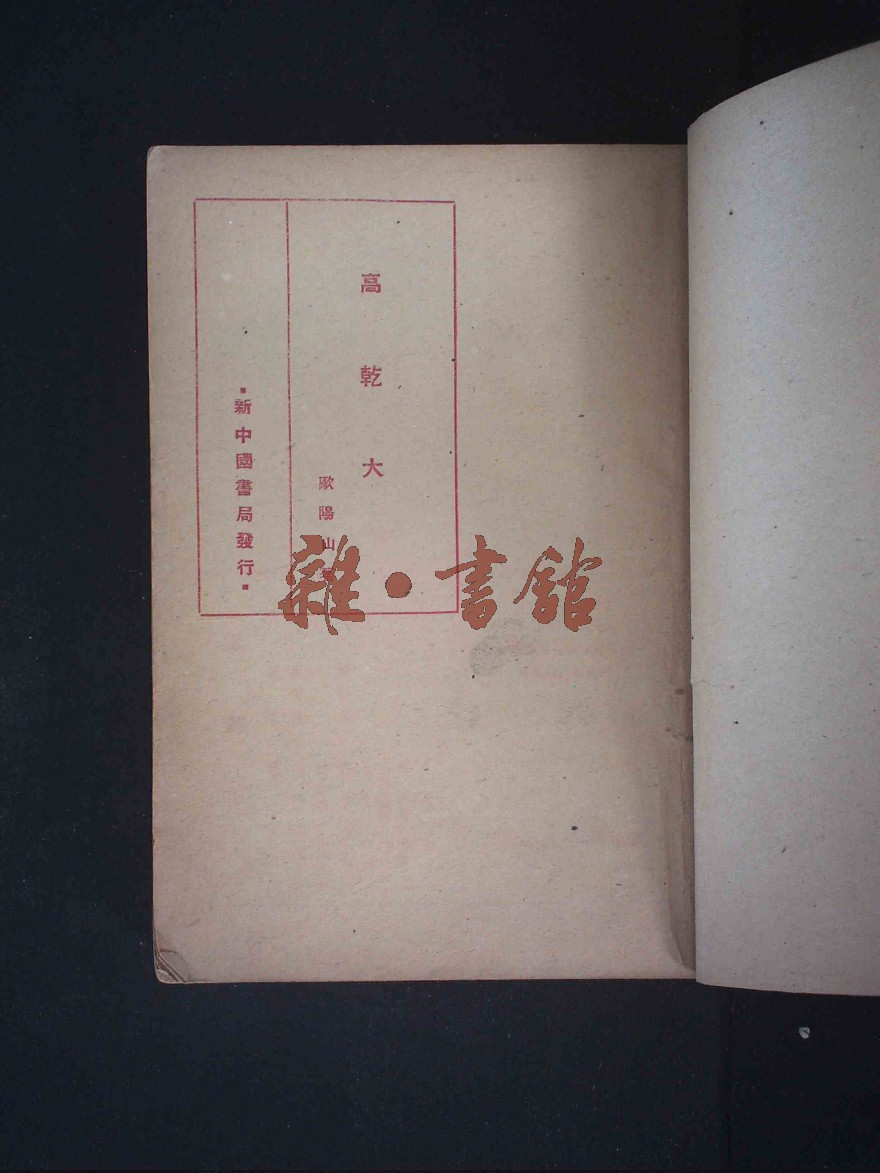 高乾大
歐陽山
·新中國書局發行·
雜·書舘